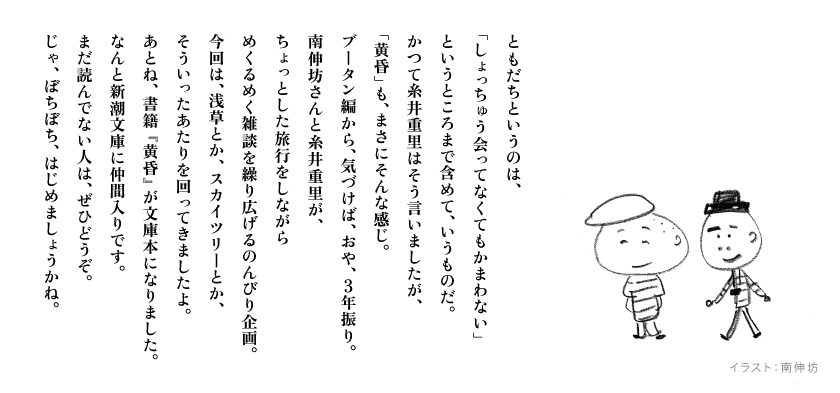 ともだちというのは、
「しょっちゅう会ってなくてもかまわない」
というところまで含めて、いうものだ。
かつて糸井重里はそう言いましたが、
「黄昏」も、まさにそんな感じ。
ブータン編から、気づけば、おや、3年振り。
南伸坊さんと糸井重里が、
ちょっとした旅行をしながら
めくるめく雑談を繰り広げるのんびり企画。
今回は、浅草とか、スカイツリーとか、
そういったあたりを回ってきましたよ。
あとね、書籍『黄昏』が文庫本になりました。
なんと新潮文庫に仲間入りです。
まだ読んでない人は、ぜひどうぞ。
じゃ、ぼちぼち、はじめましょうかね。
イラスト：南伸坊